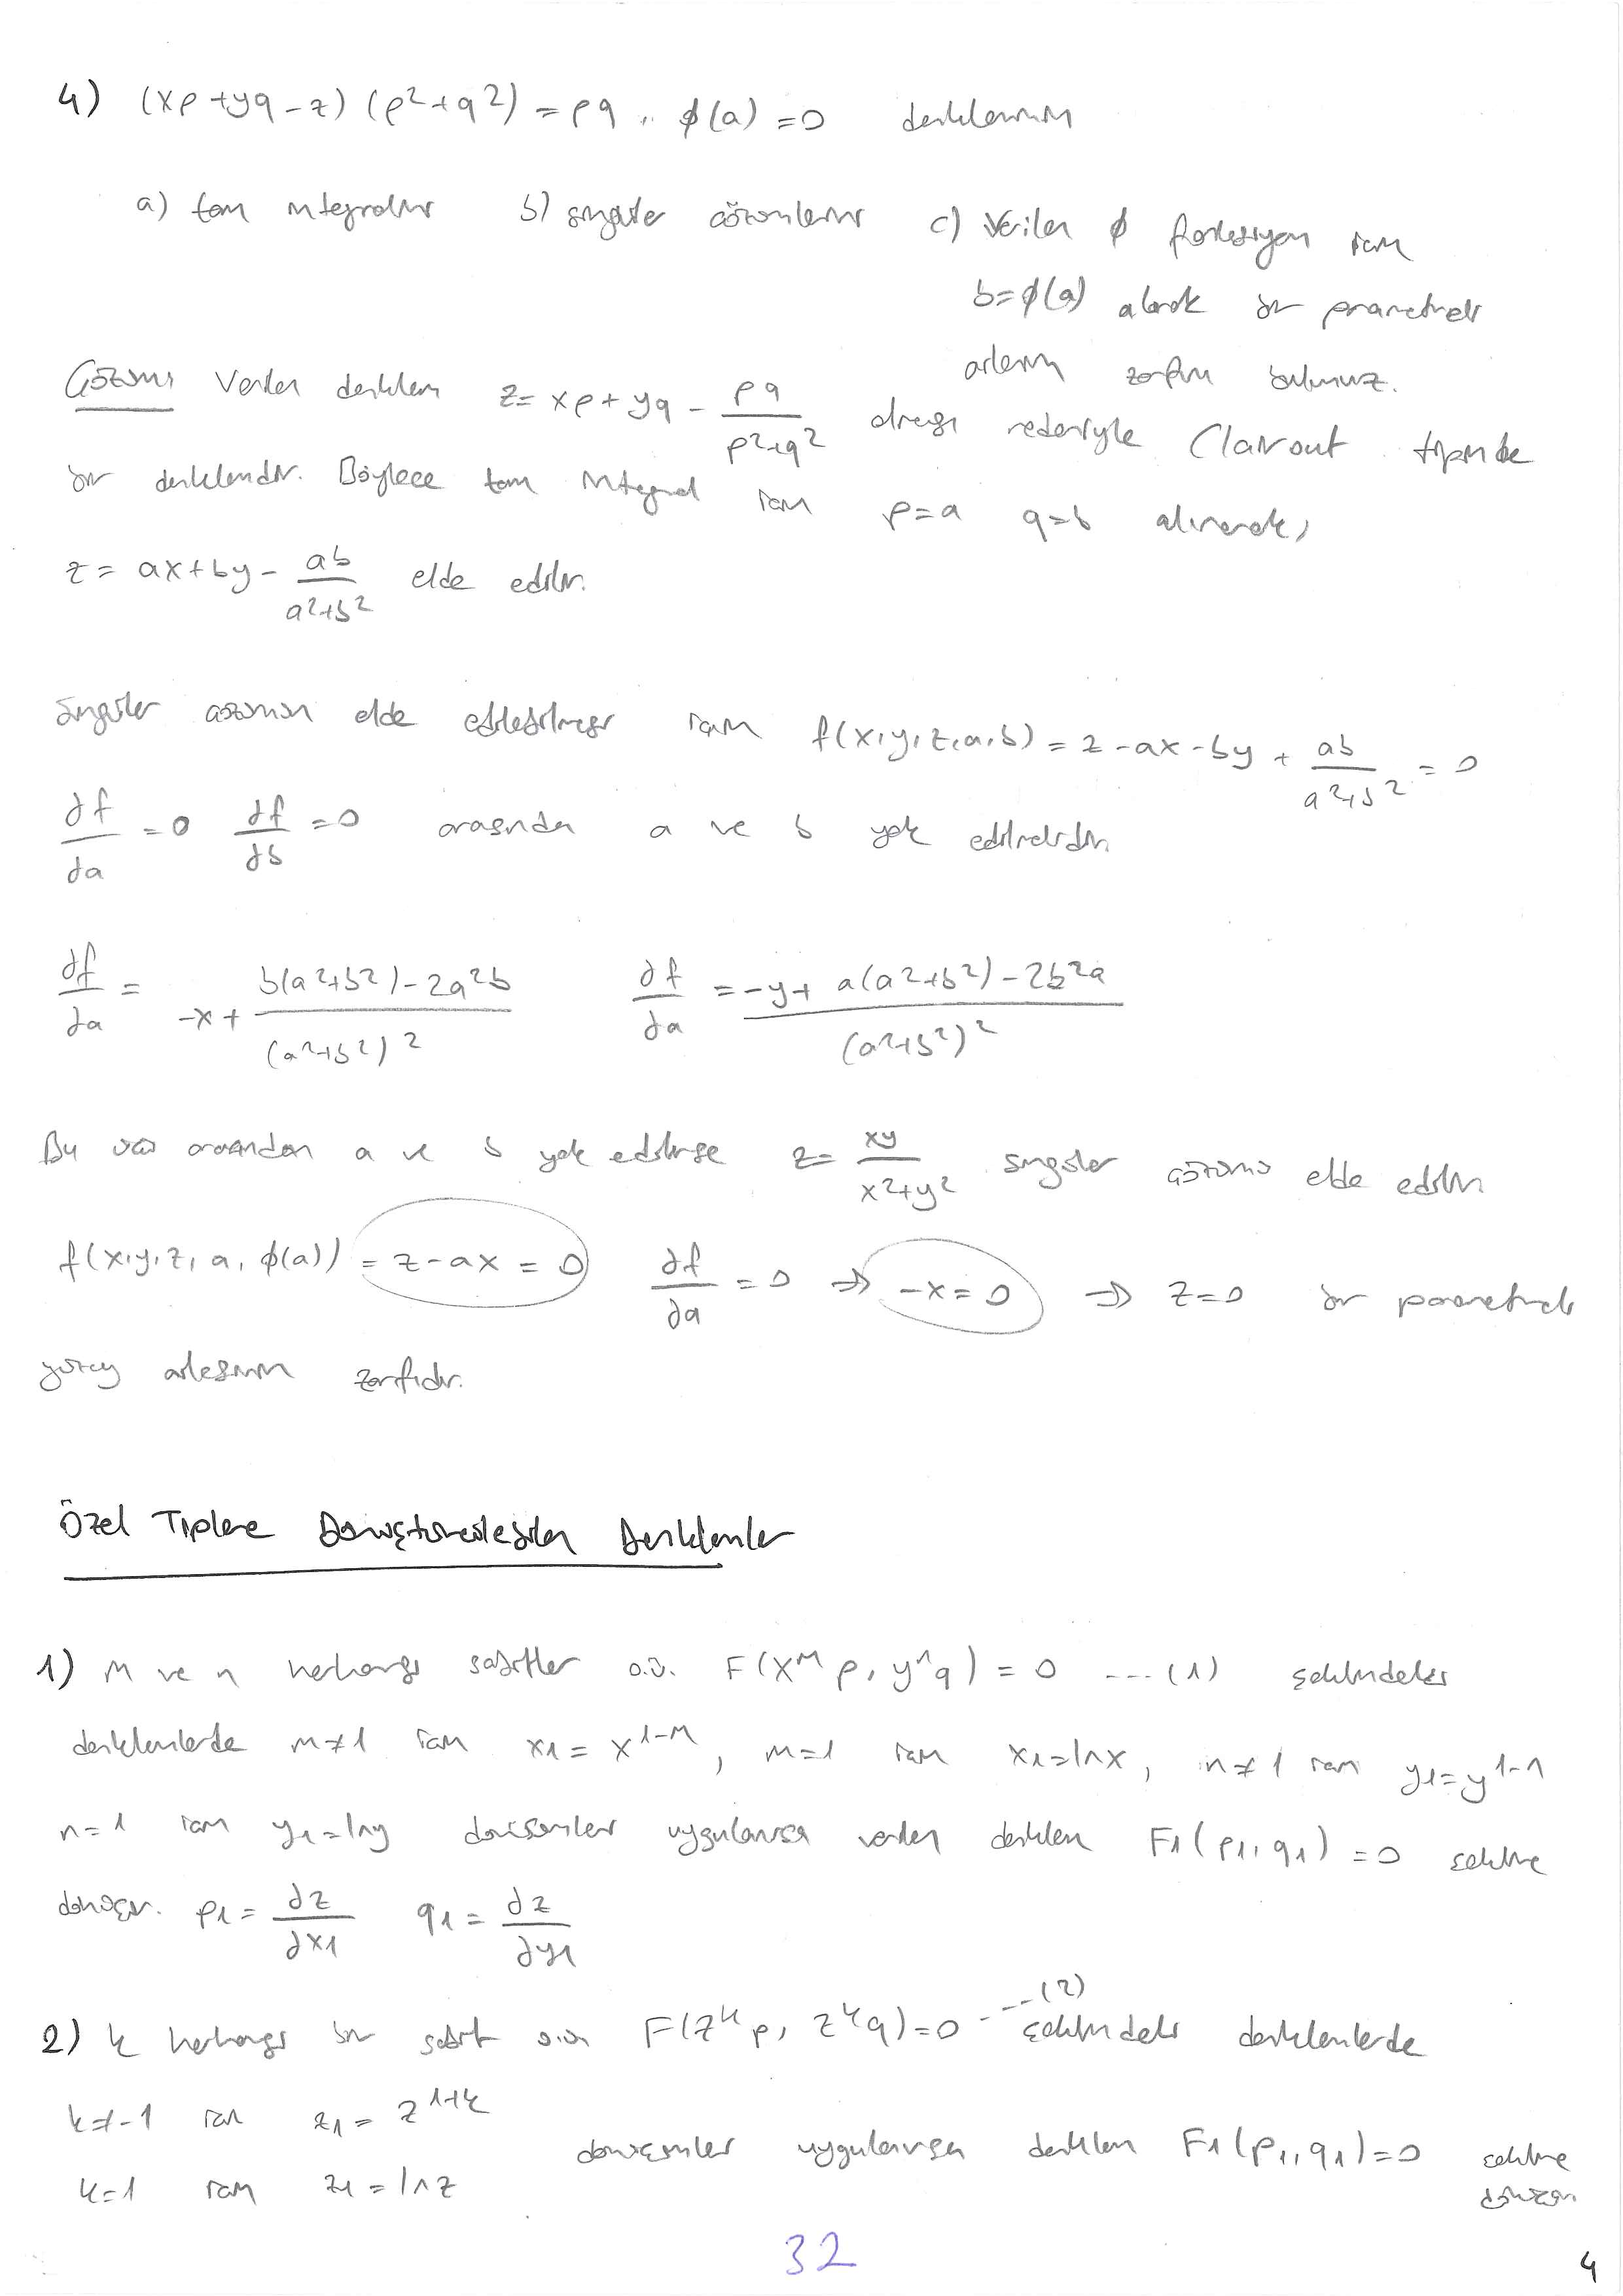 4) (xp+yq-z)(p²+q²) = pq, ϕ(a)=0 denkleminin
a) tam integralini b) singüler çözümlerini c) Verilen ϕ fonksiyon için
b=ϕ(a) alarak bir parametreli
ailenin zarfını bulunuz.
Çözüm: Verilen denklem z = xp+yq - pq/(p²+q²) olması nedeniyle Clairout tipinde
bir denklemdir. Böylece tam integral için p=a q=b alınarak,
z = ax+by - ab/(a²+b²) elde edilir.
Singüler çözümün elde edilebilmesi için f(x,y,z,a,b) = z-ax-by + ab/(a²+b²) = 0
∂f/∂a = 0 ∂f/∂b = 0 arasında a ve b yok edilmelidir.
∂f/∂a = -x + (b(a²+b²)-2a²b)/(a²+b²)² ∂f/∂a = -y + (a(a²+b²)-2b²a)/(a²+b²)²
Bu arasından a ve b yok edilirse z = xy/(x²+y²) singüler çözümü elde edilir
f(x,y,z,a,ϕ(a)) = z-ax = 0 ∂f/∂a = 0 ⇒ -x = 0 ⇒ z=0 bir parametreli
yüzey ailesinin zarfıdır.
Özel Tiplere Dönüştürülebilen Denklemler
1) m ve n herhangi sabitler o.ü. F(x^m p, y^n q) = 0 ---(1) şeklindeki
denklemlerde m≠1 için x1 = x^(1-m), m=1 için x1=lnx, n≠1 için y1=y^(1-n)
n=1 için y1=lny dönüşümler uygulanırsa verilen denklem F1(p1,q1)=0 şekline
dönüşür. p1 = ∂z/∂x1 q1 = ∂z/∂y1
2) k herhangi bir sabit F(z^k p, z^k q)=0 ---(2) şeklindeki denklemlerde
k≠-1 için z1 = z^(1+k)
dönüşümler uygulanırsa denklem F1(p1,q1)=0 şekline
k=1 için z1 = lnz
dönüşür.
32
4